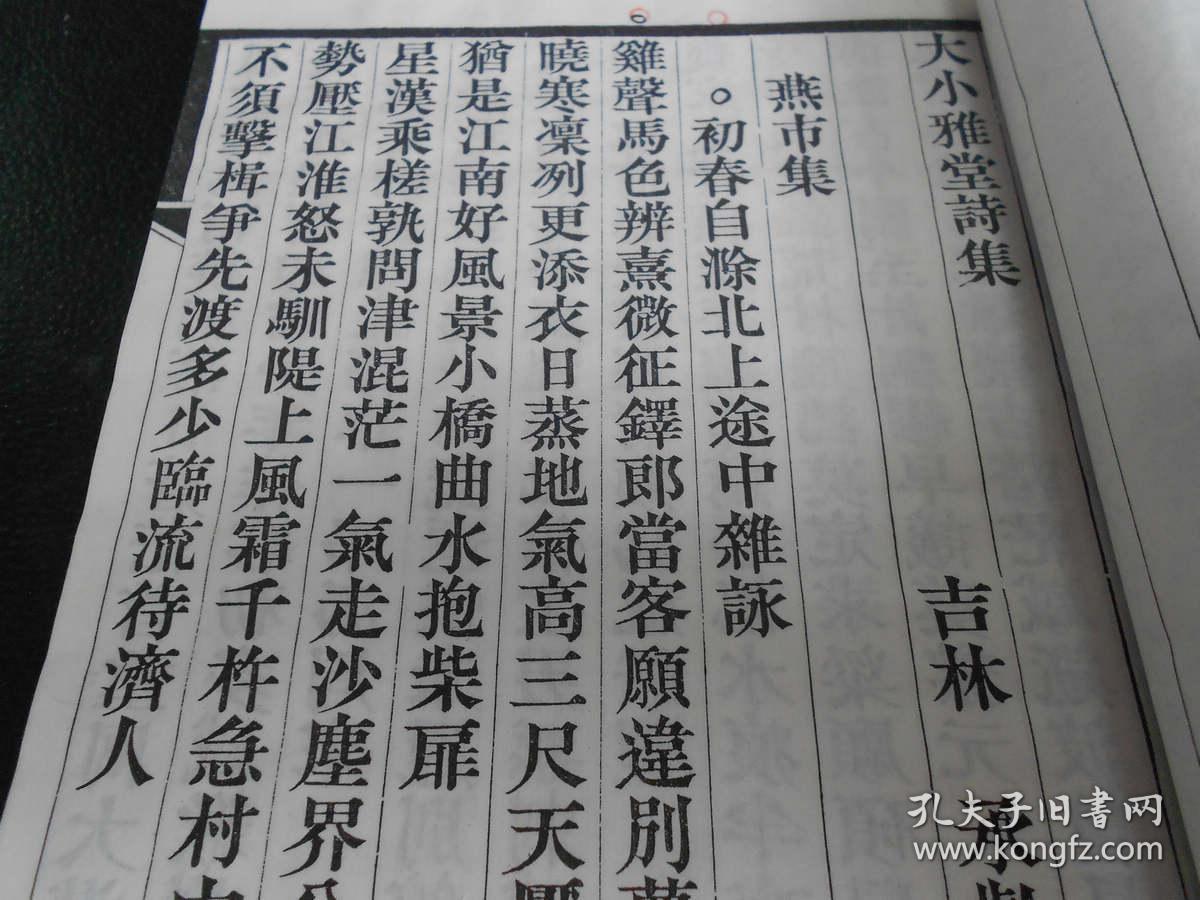 大小雅堂詩集
吉林 承
燕市集
。初春自滁北上途中雜詠
雞聲馬色辨熹微征鐸郎當客願違別
曉寒凜冽更添衣日蒸地氣高三尺天
猶是江南好風景小橋曲水抱柴扉
星漢乘槎孰問津混茫一氣走沙塵界
勢壓江淮怒未馴隄上風霜千杵急村
不須擊楫爭先渡多少臨流待濟人
孔夫子旧書网
www.kongfz.com